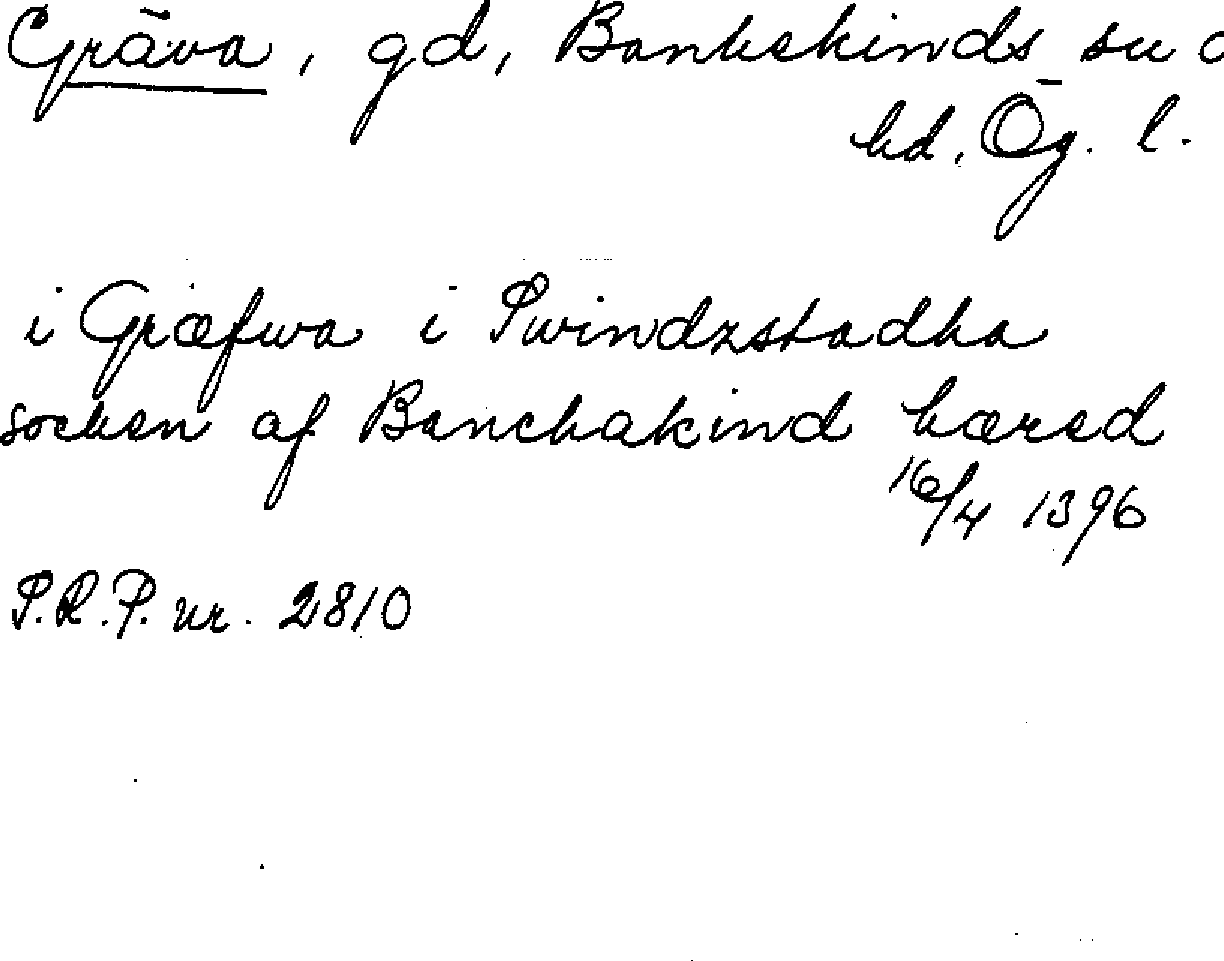 Gräva, gd, Bankekinds sn o
hd, Ög. l.
i Græfwa i Swindzstadha
socken af Banchakind hæred
16/4 1396
S.R.P. nr. 2810